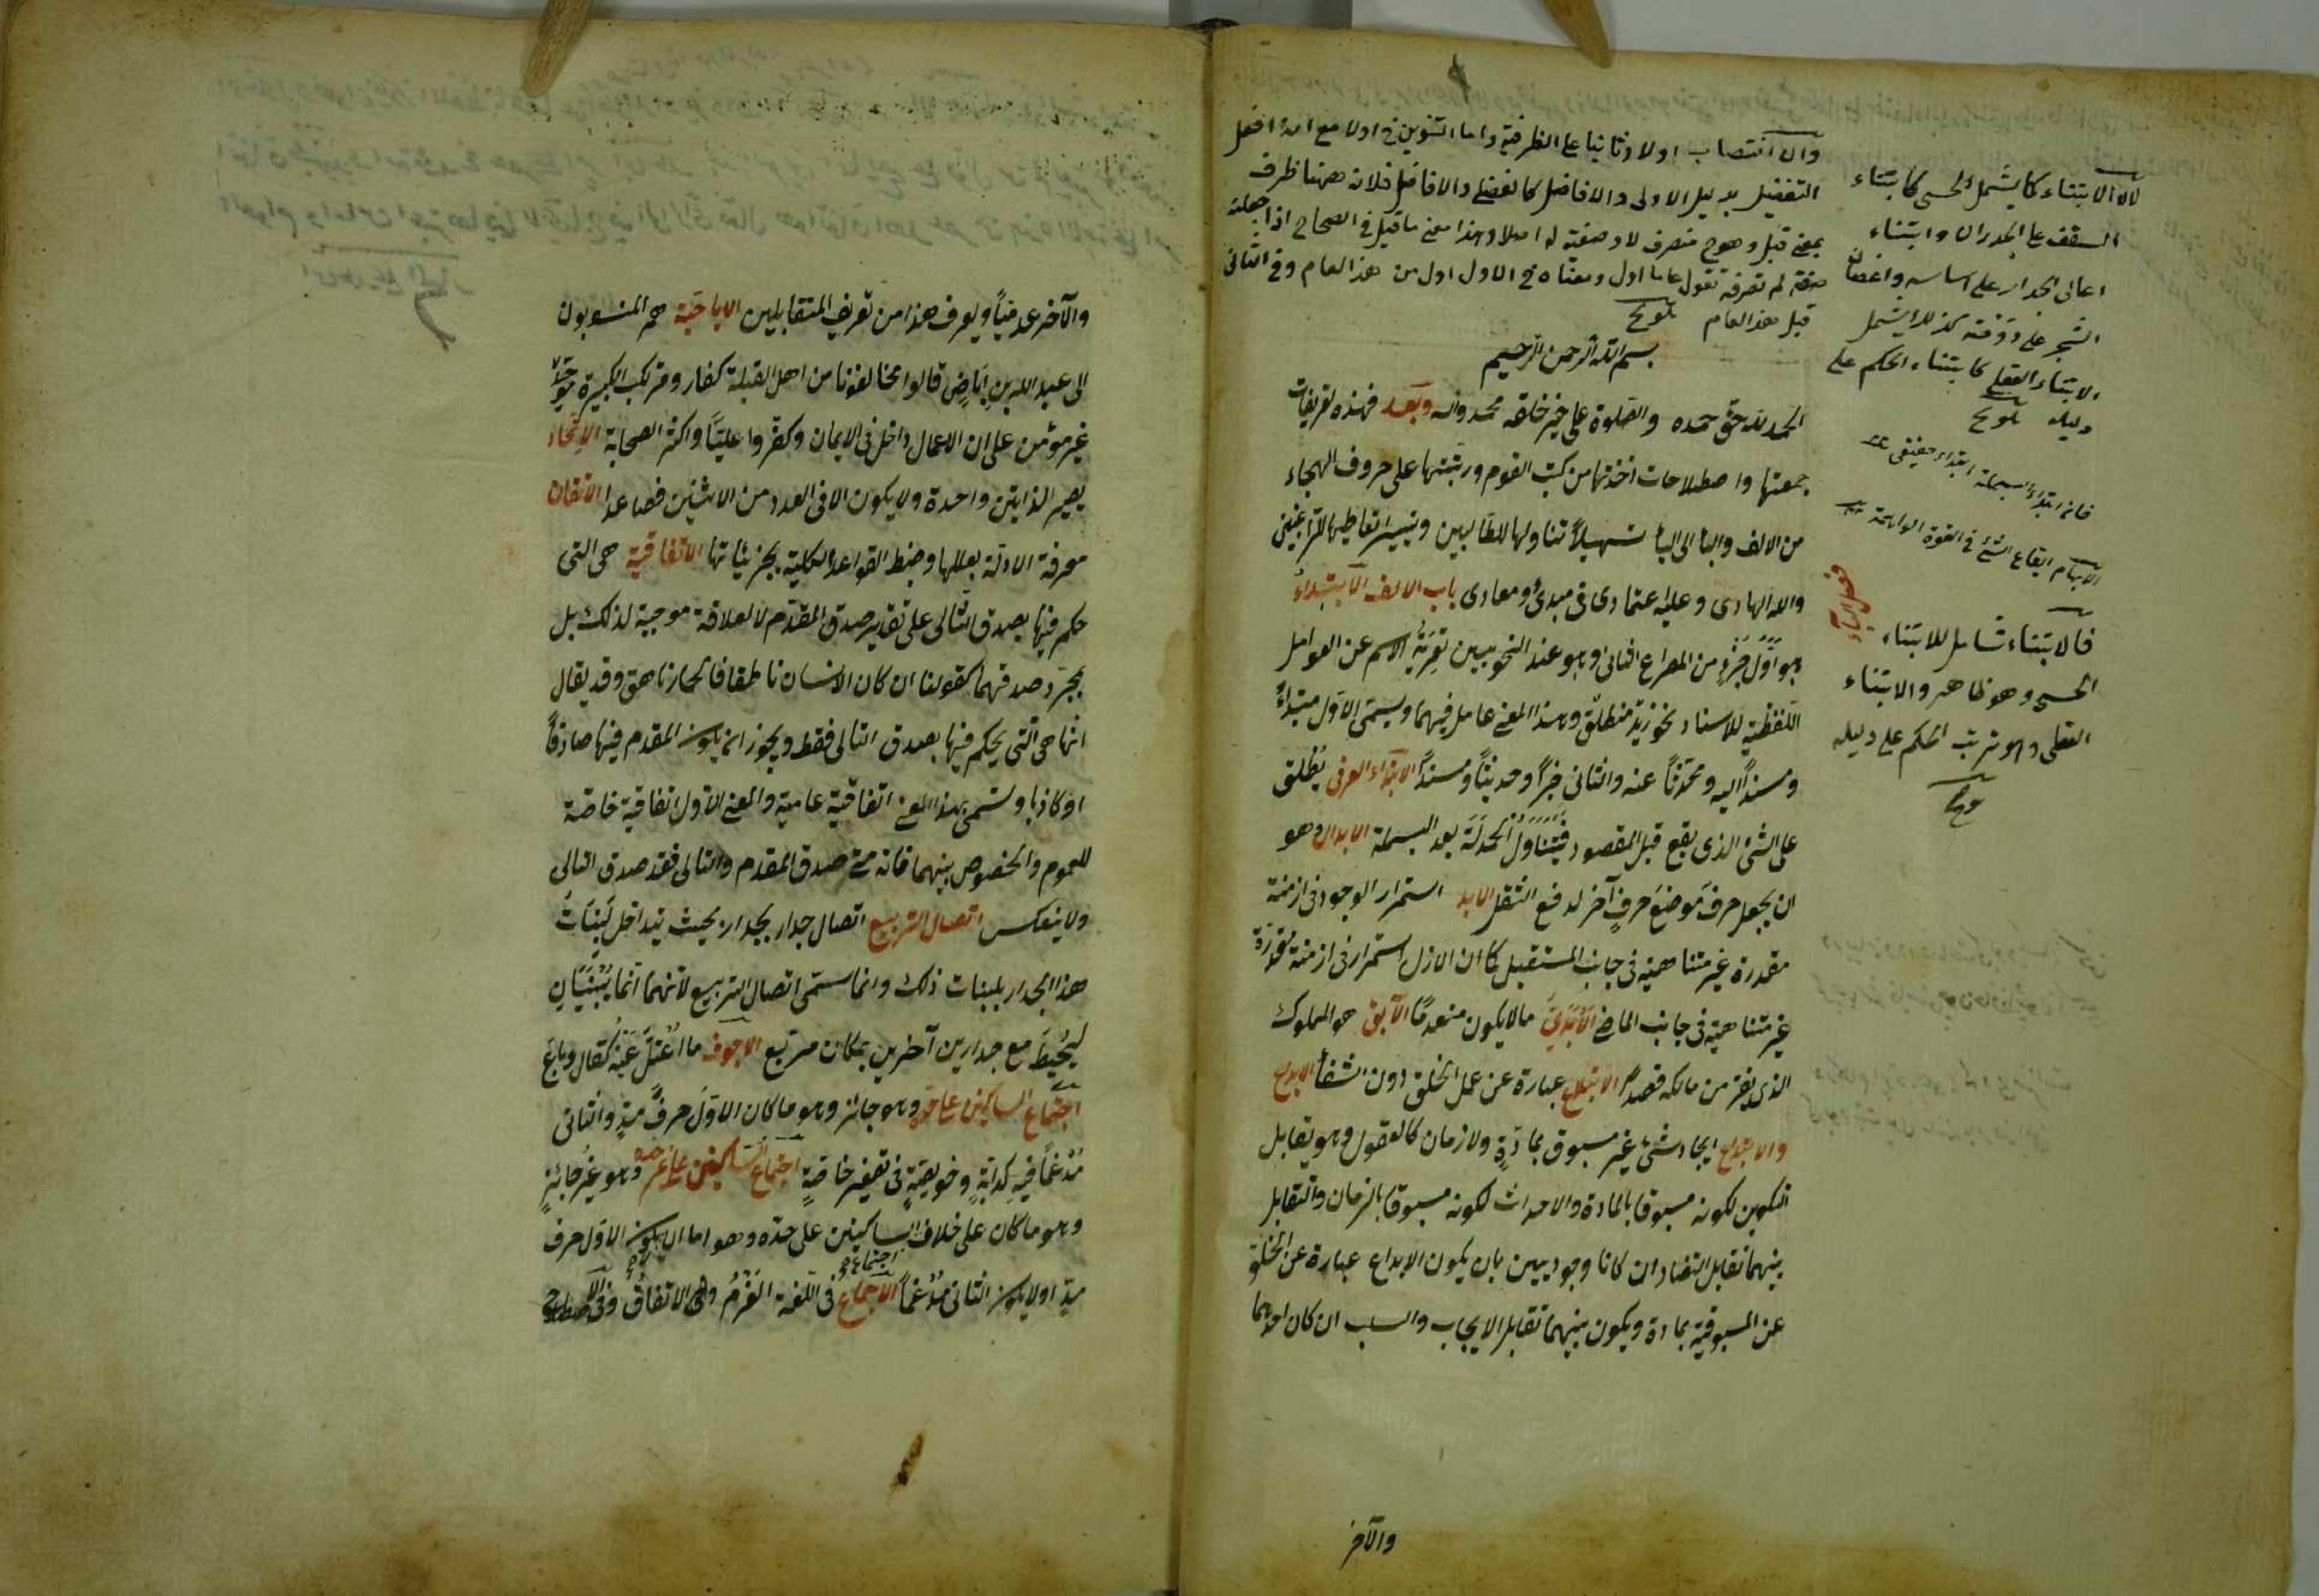 وان انتصاب اولا وثانيا على الظرفية واما التنوين في اولا مع انه افعل
التفضيل بدليل الاولى والاوائل كالفضلى والافاضل فلانه ههنا ظرف
بمعنى قبل وهو ح منصرف لا وصفية له اصلا وهذا معنى ما قيل في الصحاح اذا جعلته
صفة لم تصرفه تقول عاما اول ومعناه في الاول اول من هذا العام وفي الثاني
قبل هذا العام تلويح
لان الابتناء كما يشمل الحسي كابتناء
السقف على الجدران وابتناء
اعالى الجدار على اساسه واغصان
الشجر على دوحته كذلك يشمل
الابتناء العقلي كابتناء الحكم على
دليله تلويح
فانه ابتداء البسملة ابتداء حقيقى
الابهام ايقاع الشئ في القوة الواهمة
فصل الباء
فالابتناء شامل للابتناء
الحسي وهو ظاهر والابتناء
العقلى وهو ترتب الحكم على دليله
بسم الله الرحمن الرحيم
الحمد لله حق حمده والصلوة على خير خلقه محمد واله وبعد فهذه تعريفات
جمعتها واصطلاحات اخذتها من كتب القوم ورتبتها على حروف الهجاء
من الالف والبا الى اليا تسهيلا تناولها للطالبين وتيسير اتعاطيها للراغبين
والله الهادى وعليه اعتمادى في مبدئ ومعادى باب الالف الابتداء
هو اول جزء من المصراع الثانى وهو عند النحويين تعرية الاسم عن العوامل
اللفظية للاسناد نحو زيد منطلق وهذا المعنى عامل فيهما ويسمى الاول مبتداء
ومسندا اليه ومحدثا عنه والثانى خبرا وحديثا ومسندا الابتداء العرفى يطلق
على الشئ الذى يقع قبل المقصود فيتناول الحمدلة بعد البسملة الابدال هو
ان يجعل حرف موضع حرف آخر لدفع الثقل الابد استمرار الوجود فى ازمنة
مقدرة غير متناهية فى جانب المستقبل كما ان الازل استمرار فى ازمنة مقدرة
غير متناهية فى جانب الماضى الابدي ما لا يكون منعدما الآبق هو المملوك
الذى يفر من مالكه قصدا الابتلاع عبارة عن عمل الحلق دون الشفة الابداع
والابتداع ايجاد شئ غير مسبوق بمادة ولا زمان كالعقول وهو يقابل
التكوين لكونه مسبوقا بالمادة والاحداث لكونه مسبوقا بالزمان والتقابل
بينهما تقابل التضاد ان كانا وجوديين بان يكون الابداع عبارة عن الخلو
عن المسبوقية بمادة ويكون بينهما تقابل الايجاب والسلب ان كان احدهما
والآخر
والآخر عدميا ويعرف هذا من تعريف المتقابلين الاباضية هم المنسوبون
الى عبد الله بن اباض قالوا مخالفونا من اهل القبلة كفار ومرتكب الكبيرة موحد
غير مؤمن على ان الاعمال داخل فى الايمان وكفروا عليا واكثر الصحابة الاتحاد
يصير الذاتين واحدة ولا يكون الا فى العدد من الاثنين فصاعدا الاتقان
معرفة الادلة بعللها وضبط القواعد الكلية بجزئياتها الاتفاقية هى التى
حكم فيها بصدق التالى على تقدير صدق المقدم لا لعلاقة موجبة لذلك بل
بمجرد صدقهما كقولنا ان كان الانسان ناطقا فالحمار ناهق وقد يقال
انها هى التى يحكم فيها بصدق التالى فقط ويجوز ان يكون المقدم فيها صادقا
او كاذبا وتسمى بهذا المعنى اتفاقية عامية والمعنى الاول اتفاقية خاصة
للعموم والخصوص بينهما فانه متى صدق المقدم والتالى فقد صدق التالى
ولا ينعكس اتصال التربيع اتصال جدار بجدار بحيث تتداخل لبنات
هذا الجدار بلبنات ذلك وانما سمى اتصال التربيع لانهما انما يبنيان
ليحيط مع جدارين آخرين بمكان مربع الاجوف ما اعتل عينه كقال وباع
اجتماع الساكنين على حده وهو جائز وهو ما كان الاول حرف مد والثانى
مدغما فيه كدابة وخويصة فى تصغير خاصة اجتماع الساكنين على غير حده وهو غير جائز
وهو ما كان على خلاف الساكنين على حده وهو اما ان لا يكون الاول حرف
مد او لا يكون الثانى مدغما الاجماع فى اللغة العزم وهى الاتفاق وفى الاصطلاح